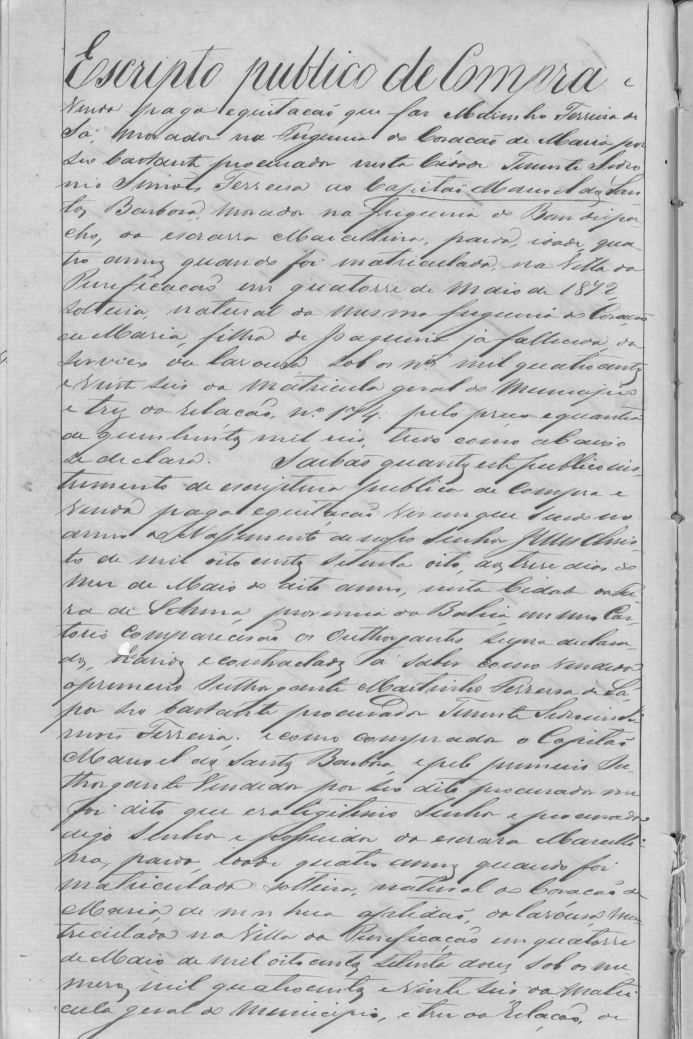 Escripto publico de Compra e
Venda paga e quitação que faz Martinho Ferreira de
Sá, morador na Freguesia do Coração de Maria por
seo bastante procurador nesta Cidade Tenente Sidro
nio Simões Ferreira ao Capitão Manoel dos San
tos Barbosa, morador na Freguesia do Bom despa
cho, da escrava Marcellina, parda, idade, qua
tro annos quando foi matriculada, na Villa da
Purificação em quatorze de Maio de 1872,
Solteira, natural da mesma freguesia do Coração
de Maria, filha de Joaquina já fallecida, do
serviço da lavoura sob os nos mil quatrocentos
e vinte seis da Matricula geral do Municipio
e tres da relação, no 174: pelo preço e quantia
de quinhentos mil reis, tudo como abaixo
se declara. Saibão quantos este publico ins
trumento de escriptura publica de compra e
venda paga e quitação virem que sendo no
anno do Nascimento de nosso Senhor Jesus Chris
to de mil oito centos setenta oito, aos treze dias do
mez de Maio do dito anno, nesta Cidade da Fei
ra de Santa Anna, provincia da Bahia em meo Car
torio comparecerão os Outhorgantes segundo declara
dos, havidos e contractados, a saber como vendedor
o primeiro Outhorgante Martinho Ferreira de Sá
por seo bastante procurador Tenente Sidronio Si
mões Ferreira: e como comprador o Capitão
Manoel dos Santos Barbosa e pelo primeiro Ou
thorgante Vendedor por seo dito procurador me
foi dito que era legitimo Senhor e procurador
digo Senhor e possuidor da escrava Marcelli
na, parda, idade quatro annos quando foi
matriculada solteira, natural do Coração de
Maria de nenhua aptidão, da lavoura Ma
triculada na Villa da Purificação em quatorze
de Maio de mil oito centos setenta dous sob os nu
meros mil quatrocentos e vinte seis da Matri
cula geral do Municipio, e tres da Relação, de